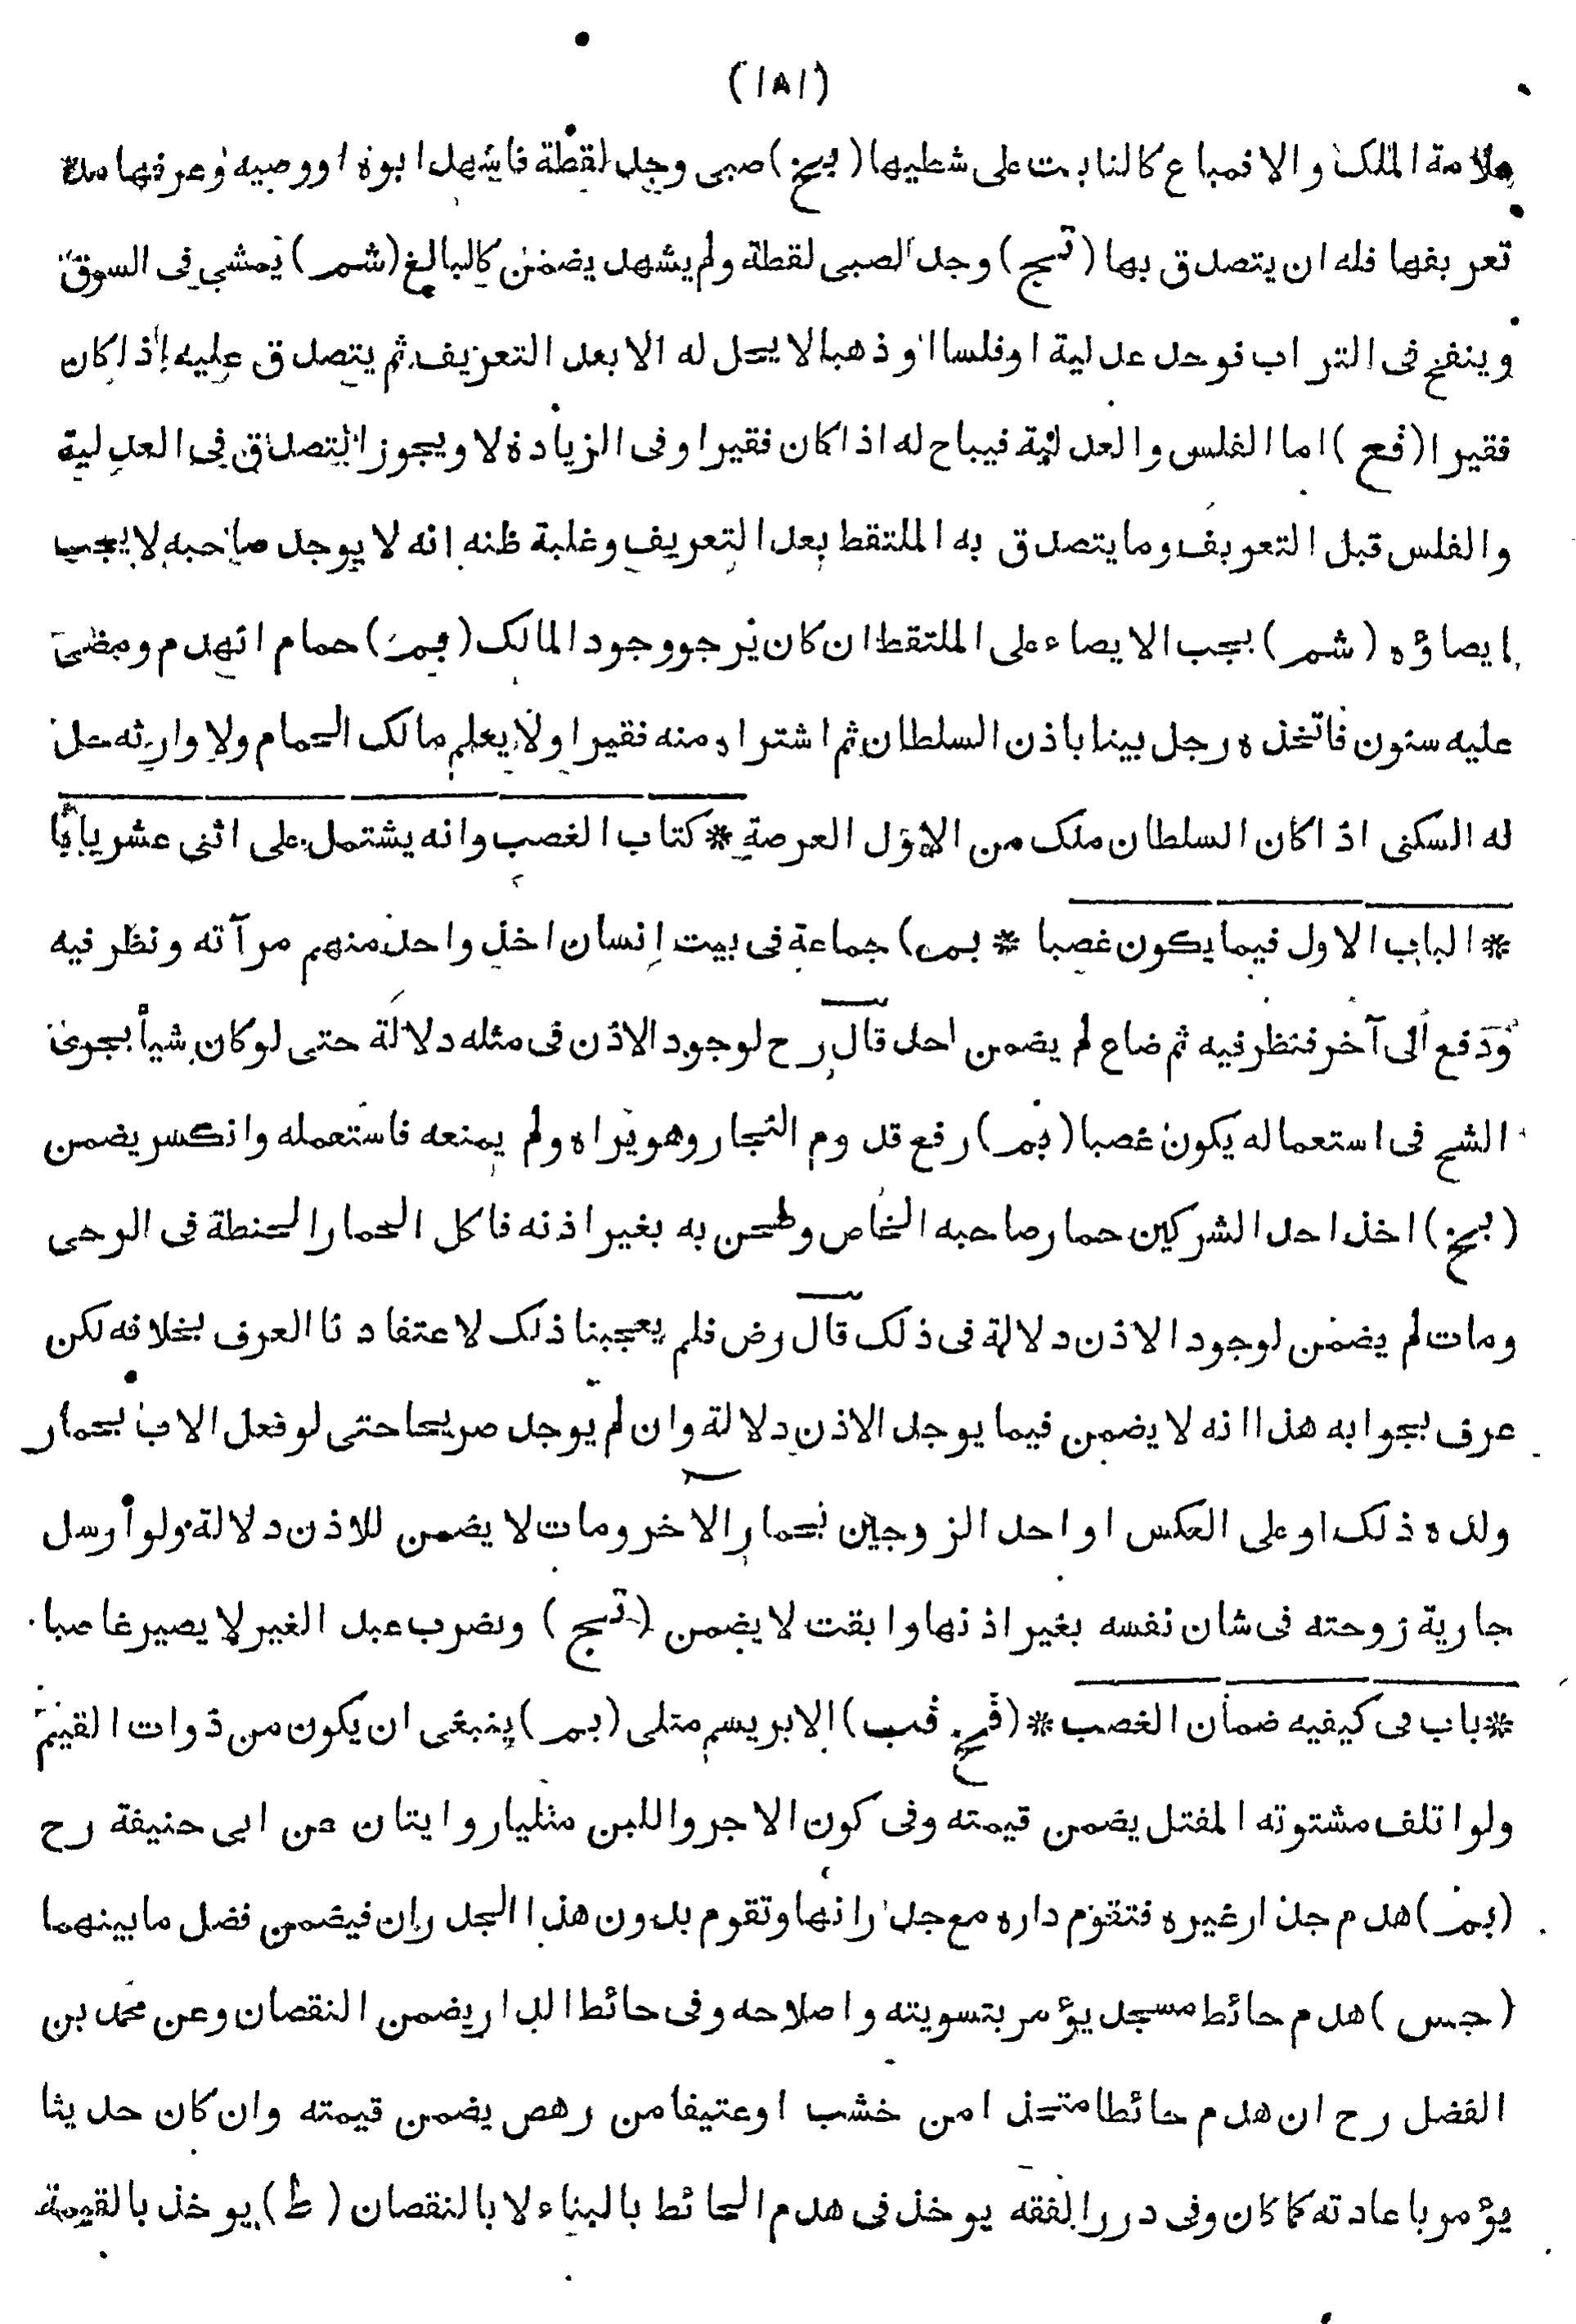 (١٨١)
علامة الملك والا فمباع كالنابت على شطيها (بخ) صبى وجد لقطة فاشهد ابوه او وصيه وعرفها مدة
تعريفها فله ان يتصدق بها (تج) وجد الصبى لقطة ولم يشهد يضمن كالبالغ (شم) يمشى فى السوق
وينفخ فى التراب فوجد عدلية او فلسا او ذهبا لا يحل له الا بعد التعريف ثم يتصدق عليه إذا كان
فقيرا (فع) اما الفلس والعدلية فيباح له اذا كان فقيرا وفى الزيادة لا ويجوز التصدق فى العدلية
والفلس قبل التعريف وما يتصدق به الملتقط بعد التعريف وغلبة ظنه انه لا يوجد صاحبه لا يجب
ايصاؤه (شم) يجب الايصاء على الملتقط ان كان يرجو وجود المالك (بم) حمام انهدم ومضى
عليه سنون فاتخذه رجل بيتا باذن السلطان ثم اشتراه منه فقيرا ولا يعلم مالك الحمام ولا وارثه حل
له السكنى اذا كان السلطان ملك من الاول العرصة * كتاب الغصب وانه يشتمل على اثنى عشر بابا
* الباب الاول فيما يكون غصبا * بم) جماعة فى بيت إنسان اخذ واحد منهم مرآته ونظر فيه
ودفع الى آخر فنظر فيه ثم ضاع لم يضمن احد قال رح لوجود الاذن فى مثله دلالة حتى لو كان شيأ يجرى
الشح فى استعماله يكون غصبا (بم) رفع قدوم النجار وهو يراه ولم يمنعه فاستعمله وانكسر يضمن
(بخ) اخذ احد الشركين حمار صاحبه الخاص وطحن به بغير اذنه فاكل الحمار الحنطة فى الرحى
ومات لم يضمن لوجود الاذن دلالة فى ذلك قال رض فلم يعجبنا ذلك لاعتقادنا العرف بخلافه لكن
عرف بجوابه هذا انه لا يضمن فيما يوجد الاذن دلالة وان لم يوجد صريحا حتى لو فعل الاب بحمار
ولده ذلك او على العكس او احد الزوجين بحمار الآخر ومات لا يضمن للاذن دلالة ولو أرسل
جارية زوجته فى شان نفسه بغير اذنها وابقت لا يضمن (تج) وبضرب عبد الغير لا يصير غاصبا
* باب فى كيفيه ضمان الغصب * (فخ فب) الابريسم مثلى (بم) ينبغى ان يكون من ذوات القيم
ولو اتلف مشتوته المفتل يضمن قيمته وفى كون الاجر واللبن مثليا روايتان عن ابى حنيفة رح
(بم) هدم جدار غيره فتقوم داره مع جدرانها وتقوم بدون هذا الجدران فيضمن فضل ما بينهما
(جس) هدم حائط مسجد يؤمر بتسويته واصلاحه وفى حائط الدار يضمن النقصان وعن محمد بن
الفضل رح ان هدم حائطا متخذا من خشب او عتيقا من رهص يضمن قيمته وان كان حديثا
يؤمر باعادته كما كان وفى درر الفقه يوخذ فى هدم الحائط بالبناء لا بالنقصان (ط) يوخذ بالقيمة